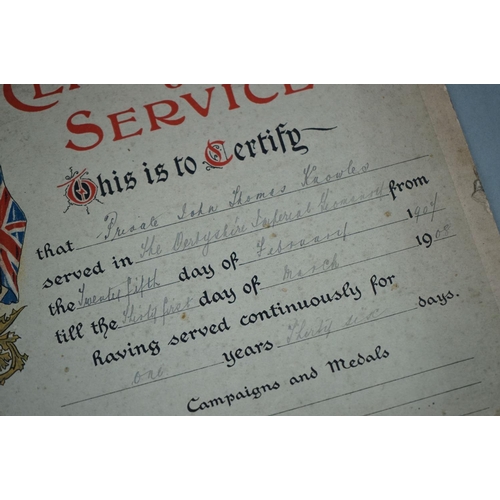 SERVICE
This is to Certify
that Private John Thomas Knowles
served in The Derbyshire Imperial Yeomanry from
the Twenty fifth day of February 1907
till the Thirty first day of March 190
having served continuously for
one years Thirty days.
Campaigns and Medals